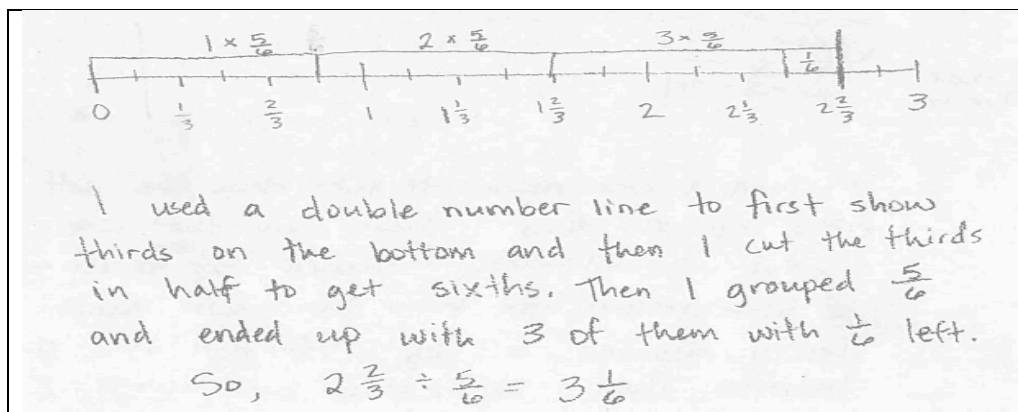 1 × 5/6 2 × 5/6 3 × 5/6 1/6
0 1/3 2/3 1 1 1/3 1 2/3 2 2 1/3 2 2/3 3
I used a double number line to first show
thirds on the bottom and then I cut the thirds
in half to get sixths. Then I grouped 5/6
and ended up with 3 of them with 1/6 left.
So, 2 2/3 ÷ 5/6 = 3 1/6